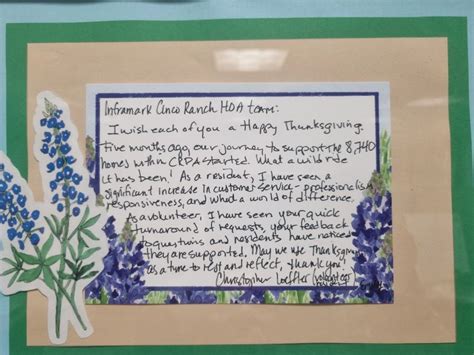 Inframark Cinco Ranch HOA team:
I wish each of you a Happy Thanksgiving.
Five months ago, our journey to support the 8,740
homes within CRPA started. What a wild ride
it has been! As a resident, I have seen a
significant increase in customer service - professionalism,
responsiveness, and what a world of difference.
As a volunteer, I have seen your quick
turnaround of requests, your feedback
to questions and residents have noticed
they are supported. May we use Thanksgiving
as a time to rest and reflect, thank you!
Christopher Loeffler (volunteer